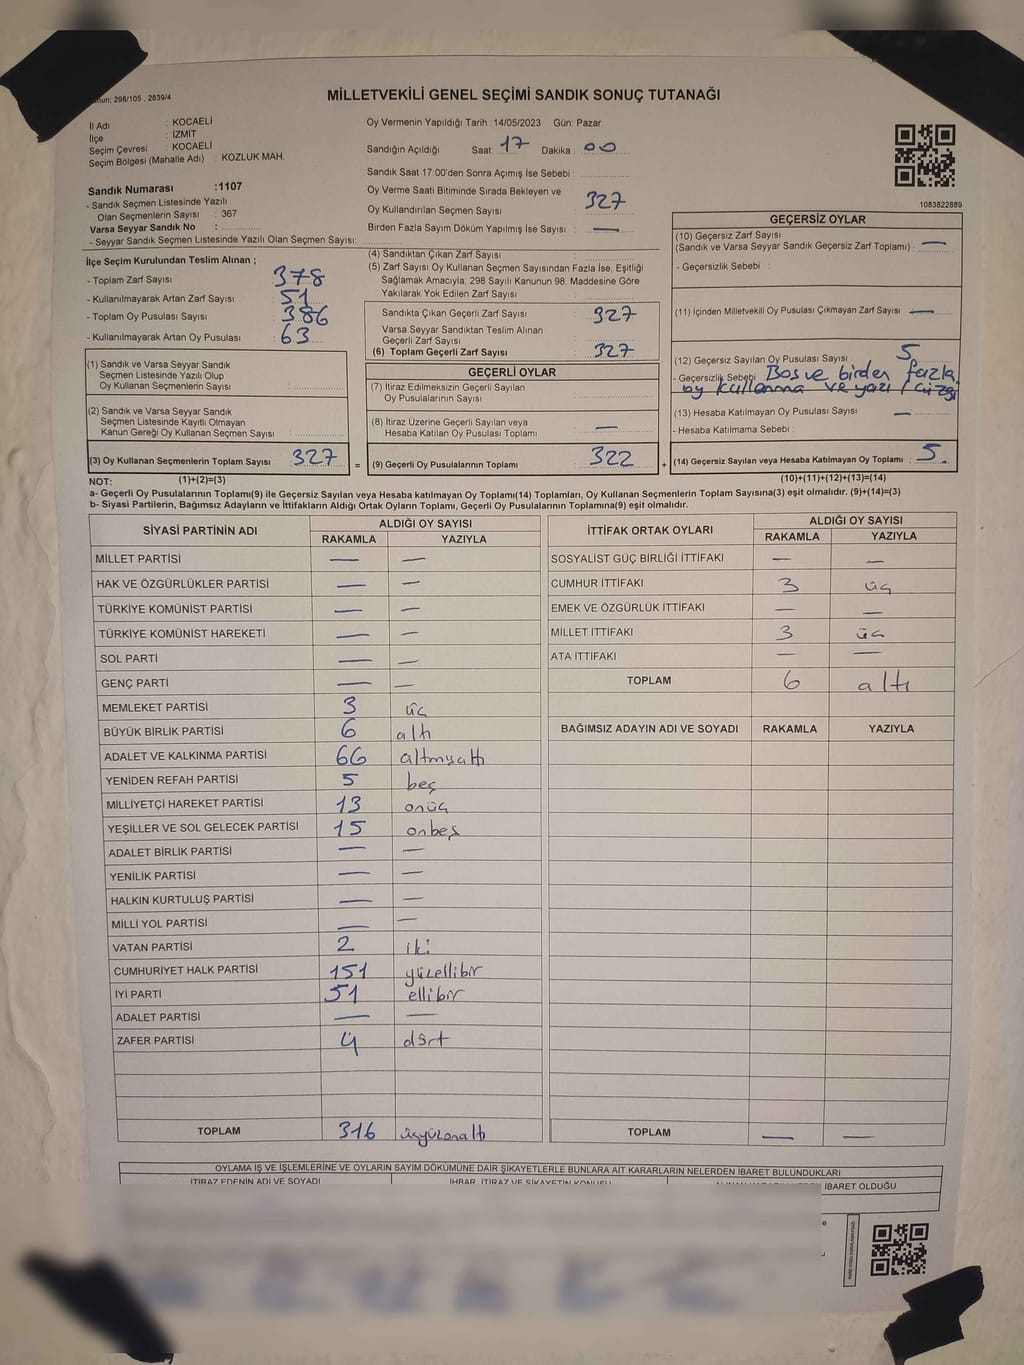 nun: 298/105 , 2839/4
MİLLETVEKİLİ GENEL SEÇİMİ SANDIK SONUÇ TUTANAĞI
İl Adı : KOCAELİ
İlçe : İZMİT
Seçim Çevresi : KOCAELİ
Seçim Bölgesi (Mahalle Adı) : KOZLUK MAH.
Sandık Numarası :1107
- Sandık Seçmen Listesinde Yazılı
Olan Seçmenlerin Sayısı : 367
Varsa Seyyar Sandık No :
- Seyyar Sandık Seçmen Listesinde Yazılı Olan Seçmen Sayısı:
Oy Vermenin Yapıldığı Tarih :14/05/2023 Gün: Pazar
Sandığın Açıldığı Saat: 17 Dakika : 00
Sandık Saat 17:00'den Sonra Açımış İse Sebebi :
Oy Verme Saati Bitiminde Sırada Bekleyen ve
Oy Kullandırılan Seçmen Sayısı : 327
Birden Fazla Sayım Döküm Yapılmış İse Sayısı : —
1083822889
İlçe Seçim Kurulundan Teslim Alınan ;
- Toplam Zarf Sayısı : 378
- Kullanılmayarak Artan Zarf Sayısı : 51
- Toplam Oy Pusulası Sayısı : 386
- Kullanılmayarak Artan Oy Pusulası : 63
(1) Sandık ve Varsa Seyyar Sandık
Seçmen Listesinde Yazılı Olup
Oy Kullanan Seçmenlerin Sayısı :
(2) Sandık ve Varsa Seyyar Sandık
Seçmen Listesinde Kayıtlı Olmayan
Kanun Gereği Oy Kullanan Seçmen Sayısı :
(3) Oy Kullanan Seçmenlerin Toplam Sayısı : 327
(4) Sandıktan Çıkan Zarf Sayısı :
(5) Zarf Sayısı Oy Kullanan Seçmen Sayısından Fazla İse, Eşitliği
Sağlamak Amacıyla; 298 Sayılı Kanunun 98. Maddesine Göre
Yakılarak Yok Edilen Zarf Sayısı :
Sandıkta Çıkan Geçerli Zarf Sayısı : 327
Varsa Seyyar Sandıktan Teslim Alınan
Geçerli Zarf Sayısı :
(6) Toplam Geçerli Zarf Sayısı : 327
GEÇERLİ OYLAR
(7) İtiraz Edilmeksizin Geçerli Sayılan
Oy Pusulalarının Sayısı :
(8) İtiraz Üzerine Geçerli Sayılan veya
Hesaba Katılan Oy Pusulası Toplamı : —
= (9) Geçerli Oy Pusulalarının Toplamı : 322
GEÇERSİZ OYLAR
(10) Geçersiz Zarf Sayısı
(Sandık ve Varsa Seyyar Sandık Geçersiz Zarf Toplamı) : —
- Geçersizlik Sebebi :
(11) İçinden Milletvekili Oy Pusulası Çıkmayan Zarf Sayısı : —
(12) Geçersiz Sayılan Oy Pusulası Sayısı : 5
- Geçersizlik Sebebi : Boş ve birden fazla
oy kullanma ve yazı / çizgi
(13) Hesaba Katılmayan Oy Pusulası Sayısı : —
- Hesaba Katılmama Sebebi :
+ (14) Geçersiz Sayılan veya Hesaba Katılmayan Oy Toplamı : 5.
NOT: (1)+(2)=(3) (10)+(11)+(12)+(13)=(14)
a- Geçerli Oy Pusulalarının Toplamı(9) ile Geçersiz Sayılan veya Hesaba katılmayan Oy Toplamı(14) Toplamları, Oy Kullanan Seçmenlerin Toplam Sayısına(3) eşit olmalıdır. (9)+(14)=(3)
b- Siyasi Partilerin, Bağımsız Adayların ve İttifakların Aldığı Ortak Oyların Toplamı, Geçerli Oy Pusulalarının Toplamına(9) eşit olmalıdır.
SİYASİ PARTİNİN ADI ALDIĞI OY SAYISI
RAKAMLA YAZIYLA
MİLLET PARTİSİ — —
HAK VE ÖZGÜRLÜKLER PARTİSİ — —
TÜRKİYE KOMÜNİST PARTİSİ — —
TÜRKİYE KOMÜNİST HAREKETİ — —
SOL PARTİ — —
GENÇ PARTİ — —
MEMLEKET PARTİSİ 3 üç
BÜYÜK BİRLİK PARTİSİ 6 altı
ADALET VE KALKINMA PARTİSİ 66 altmışaltı
YENİDEN REFAH PARTİSİ 5 beş
MİLLİYETÇİ HAREKET PARTİSİ 13 onüç
YEŞİLLER VE SOL GELECEK PARTİSİ 15 onbeş
ADALET BİRLİK PARTİSİ — —
YENİLİK PARTİSİ — —
HALKIN KURTULUŞ PARTİSİ — —
MİLLİ YOL PARTİSİ — —
VATAN PARTİSİ 2 iki
CUMHURİYET HALK PARTİSİ 151 yüzellibir
İYİ PARTİ 51 ellibir
ADALET PARTİSİ — —
ZAFER PARTİSİ 4 dört
TOPLAM 316 üçyüzonaltı
İTTİFAK ORTAK OYLARI ALDIĞI OY SAYISI
RAKAMLA YAZIYLA
SOSYALİST GÜÇ BİRLİĞİ İTTİFAKI — —
CUMHUR İTTİFAKI 3 üç
EMEK VE ÖZGÜRLÜK İTTİFAKI — —
MİLLET İTTİFAKI 3 üç
ATA İTTİFAKI — —
TOPLAM 6 altı
BAĞIMSIZ ADAYIN ADI VE SOYADI RAKAMLA YAZIYLA
TOPLAM — —
OYLAMA İŞ VE İŞLEMLERİNE VE OYLARIN SAYIM DÖKÜMÜNE DAİR ŞİKAYETLERLE BUNLARA AİT KARARLARIN NELERDEN İBARET BULUNDUKLARI
İTİRAZ EDENİN ADI VE SOYADI İHBAR, İTİRAZ VE ŞİKAYETİN KONUSU İBARET OLDUĞU